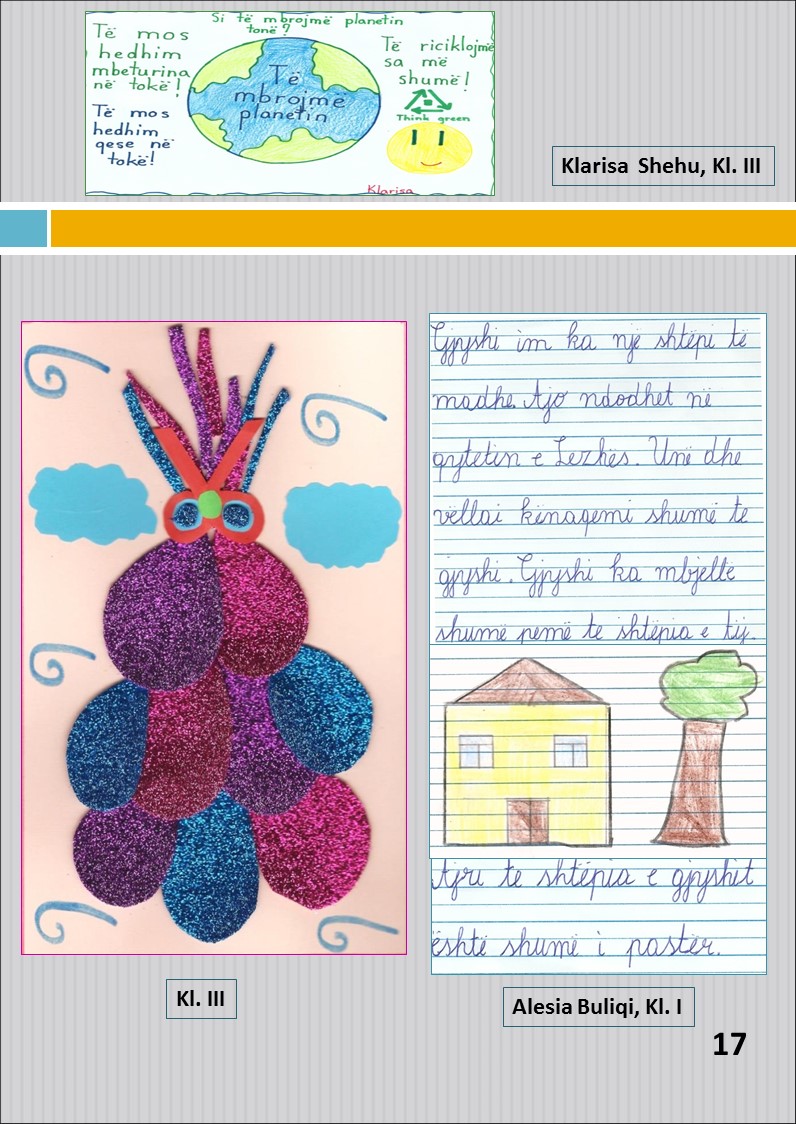 Si të mbrojmë planetin
tonë?
Të mos
hedhim
mbeturina
në tokë!
Të mos
hedhim
qese në
tokë!
Të
mbrojmë
planetin
Të riciklojmë
sa më
shumë!
Think green
Klarisa
Klarisa Shehu, Kl. III
Gjyshi im ka një shtëpi të
madhe. Ajo ndodhet në
qytetin e Lezhës. Unë dhe
vëllai kënaqemi shumë te
gjyshi. Gjyshi ka mbjellë
shumë pemë te shtëpia e tij.
Ajri te shtëpia e gjyshit
është shumë i pastër.
Kl. III
Alesia Buliqi, Kl. I
17